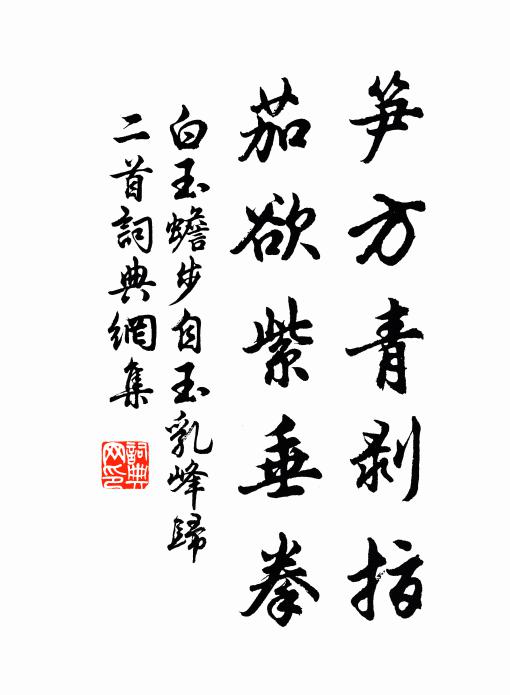 笋方青剥指
茄欲紫垂拳
白玉蟾步自玉乳峰歸
二首詞典網集
詞典
网印